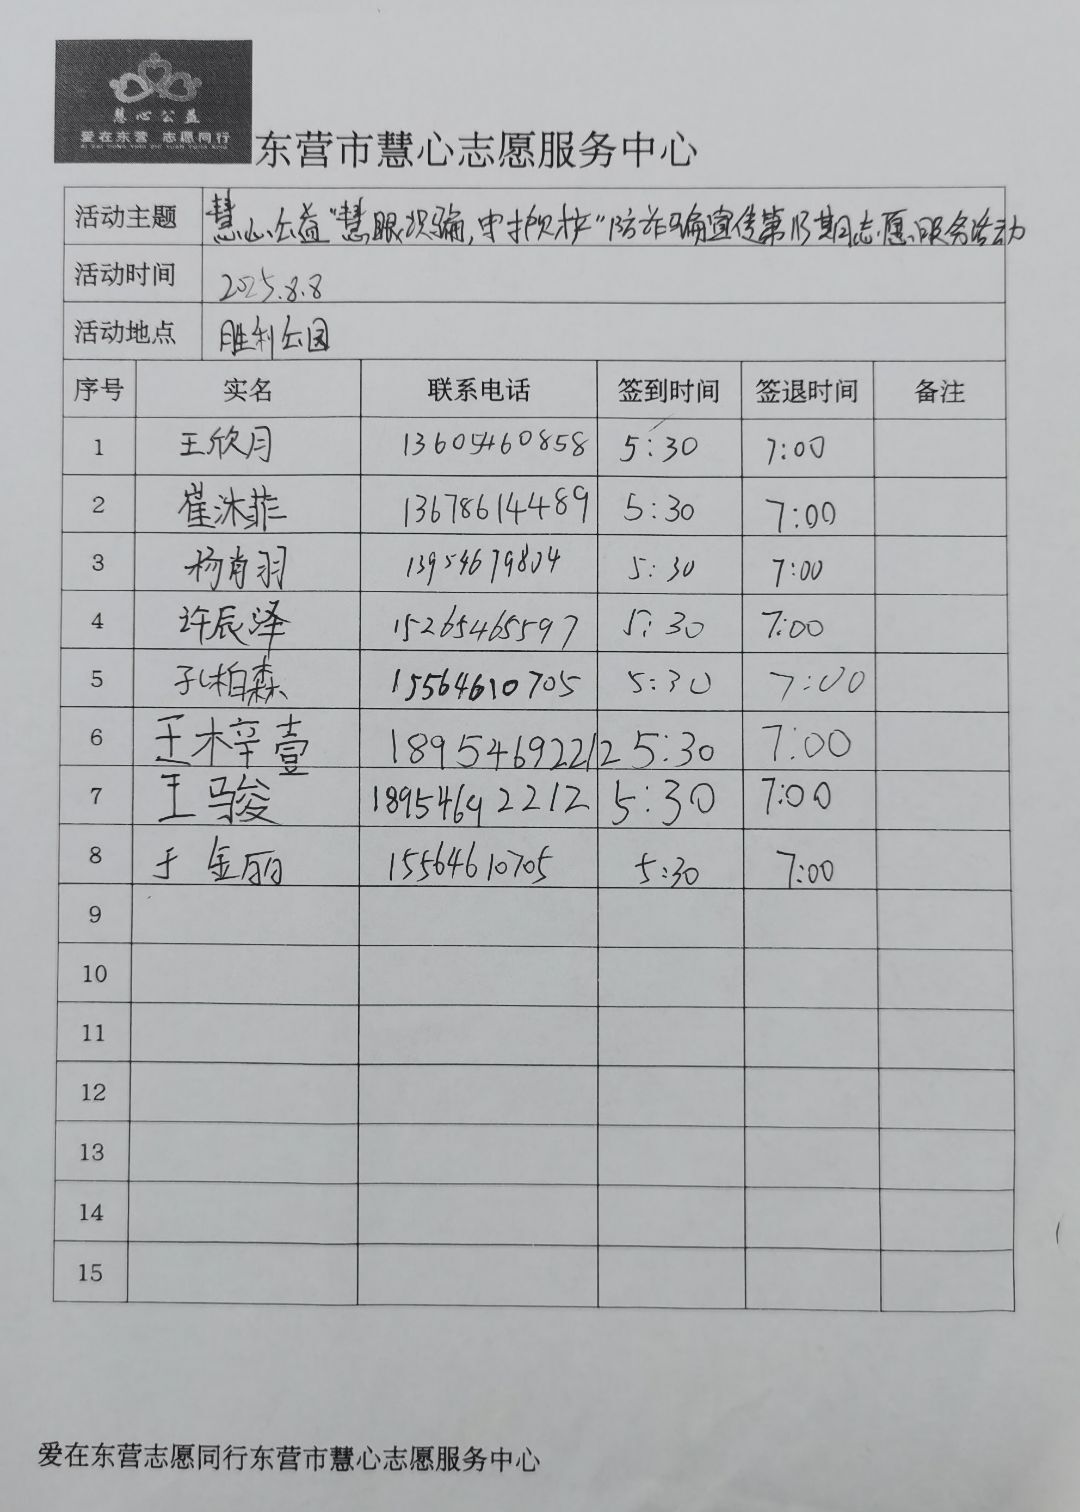 慧心公益
爱在东营 志愿同行
东营市慧心志愿服务中心
活动主题 慧心公益"慧眼识骗,守护夕阳"防诈骗宣传第15期志愿服务活动
活动时间 2025.8.8
活动地点 胜利公园
序号 实名 联系电话 签到时间 签退时间 备注
1 王欣月 13605460858 5:30 7:00
2 崔沐菲 13678614489 5:30 7:00
3 杨肖羽 13954679834 5:30 7:00
4 许辰泽 15265465597 5:30 7:00
5 孔柏森 15564610705 5:30 7:00
6 王木梓壹 18954692212 5:30 7:00
7 王骏 18954692212 5:30 7:00
8 于金丽 15564610705 5:30 7:00
9
10
11
12
13
14
15
爱在东营志愿同行东营市慧心志愿服务中心